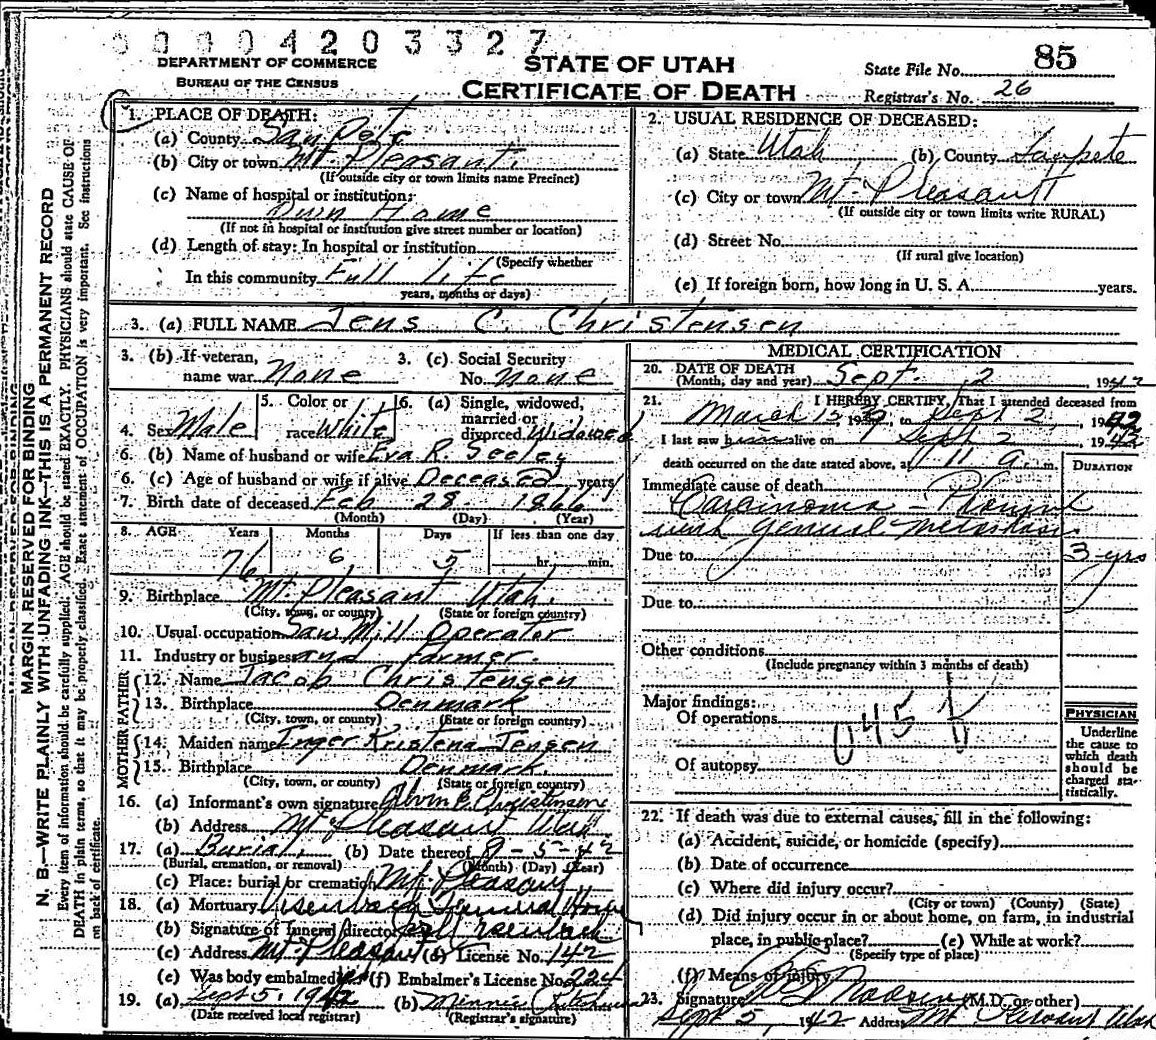 00004203327
DEPARTMENT OF COMMERCE
BUREAU OF THE CENSUS
STATE OF UTAH
CERTIFICATE OF DEATH
State File No. 85
Registrar's No. 26
MARGIN RESERVED FOR BINDING
N. B.—WRITE PLAINLY WITH UNFADING INK—THIS IS A PERMANENT RECORD
Every item of information should be carefully supplied. AGE should be stated EXACTLY. PHYSICIANS should state CAUSE OF
DEATH in plain terms, so that it may be properly classified. Exact statement of OCCUPATION is very important. See instructions
on back of certificate.
1. PLACE OF DEATH:
(a) County San Pete
(b) City or town Mt. Pleasant.
(If outside city or town limits name Precinct)
(c) Name of hospital or institution:
Own Home
(If not in hospital or institution give street number or location)
(d) Length of stay: In hospital or institution
(Specify whether
In this community Full life
years, months or days)
2. USUAL RESIDENCE OF DECEASED:
(a) State Utah (b) County Sanpete
(c) City or town Mt. Pleasant
(If outside city or town limits write RURAL)
(d) Street No.
(If rural give location)
(e) If foreign born, how long in U. S. A. years.
3. (a) FULL NAME Jens C. Christensen
3. (b) If veteran, name war None
3. (c) Social Security No. none
4. Sex Male
5. Color or race White
6. (a) Single, widowed, married or divorced Widowed
6. (b) Name of husband or wife Eva R. Seeley
6. (c) Age of husband or wife if alive Deceased years
7. Birth date of deceased Feb 28 1866
(Month) (Day) (Year)
8. AGE Years Months Days If less than one day
76 6 5 hr. min.
9. Birthplace Mt. Pleasant Utah.
(City, town, or county) (State or foreign country)
10. Usual occupation Saw Mill Operator
11. Industry or business and Farmer.
FATHER
12. Name Jacob Christensen
13. Birthplace Denmark
(City, town, or county) (State or foreign country)
MOTHER
14. Maiden name Inger Kristena Jensen
15. Birthplace Denmark.
(City, town, or county) (State or foreign country)
16. (a) Informant's own signature Alvin C. Christensen
(b) Address Mt Pleasant Utah
17. (a) Burial. (b) Date thereof 9-5-42
(Burial, cremation, or removal) (Month) (Day) (Year)
(c) Place: burial or cremation Mt. Pleasant
18. (a) Mortuary Ursenbach Funeral Home
(b) Signature of funeral director Ursenbach
(c) Address Mt Pleasant (d) License No. 142
(e) Was body embalmed yes (f) Embalmer's License No. 224
19. (a) Sept 5, 1942 (b) Minnie
(Date received local registrar) (Registrar's signature)
MEDICAL CERTIFICATION
20. DATE OF DEATH
(Month, day and year) Sept. 2, 1942
21. I HEREBY CERTIFY, That I attended deceased from
March 15 1939, to Sept 2, 1942
I last saw him alive on Sept 2 1942
death occurred on the date stated above, at 11 a. m.
DURATION
Immediate cause of death
Carcinoma -
with general metastasis
Due to 3 yrs
Due to
Other conditions
(Include pregnancy within 3 months of death)
Major findings:
Of operations
045
Of autopsy
PHYSICIAN
Underline the cause to which death should be charged statistically.
22. If death was due to external causes, fill in the following:
(a) Accident, suicide, or homicide (specify)
(b) Date of occurrence
(c) Where did injury occur?
(City or town) (County) (State)
(d) Did injury occur in or about home, on farm, in industrial
place, in public place? (e) While at work?
(Specify type of place)
(f) Means of injury
23. Signature Madsen (M.D. or other)
Sept 5, 1942 Address Mt Pleasant Utah